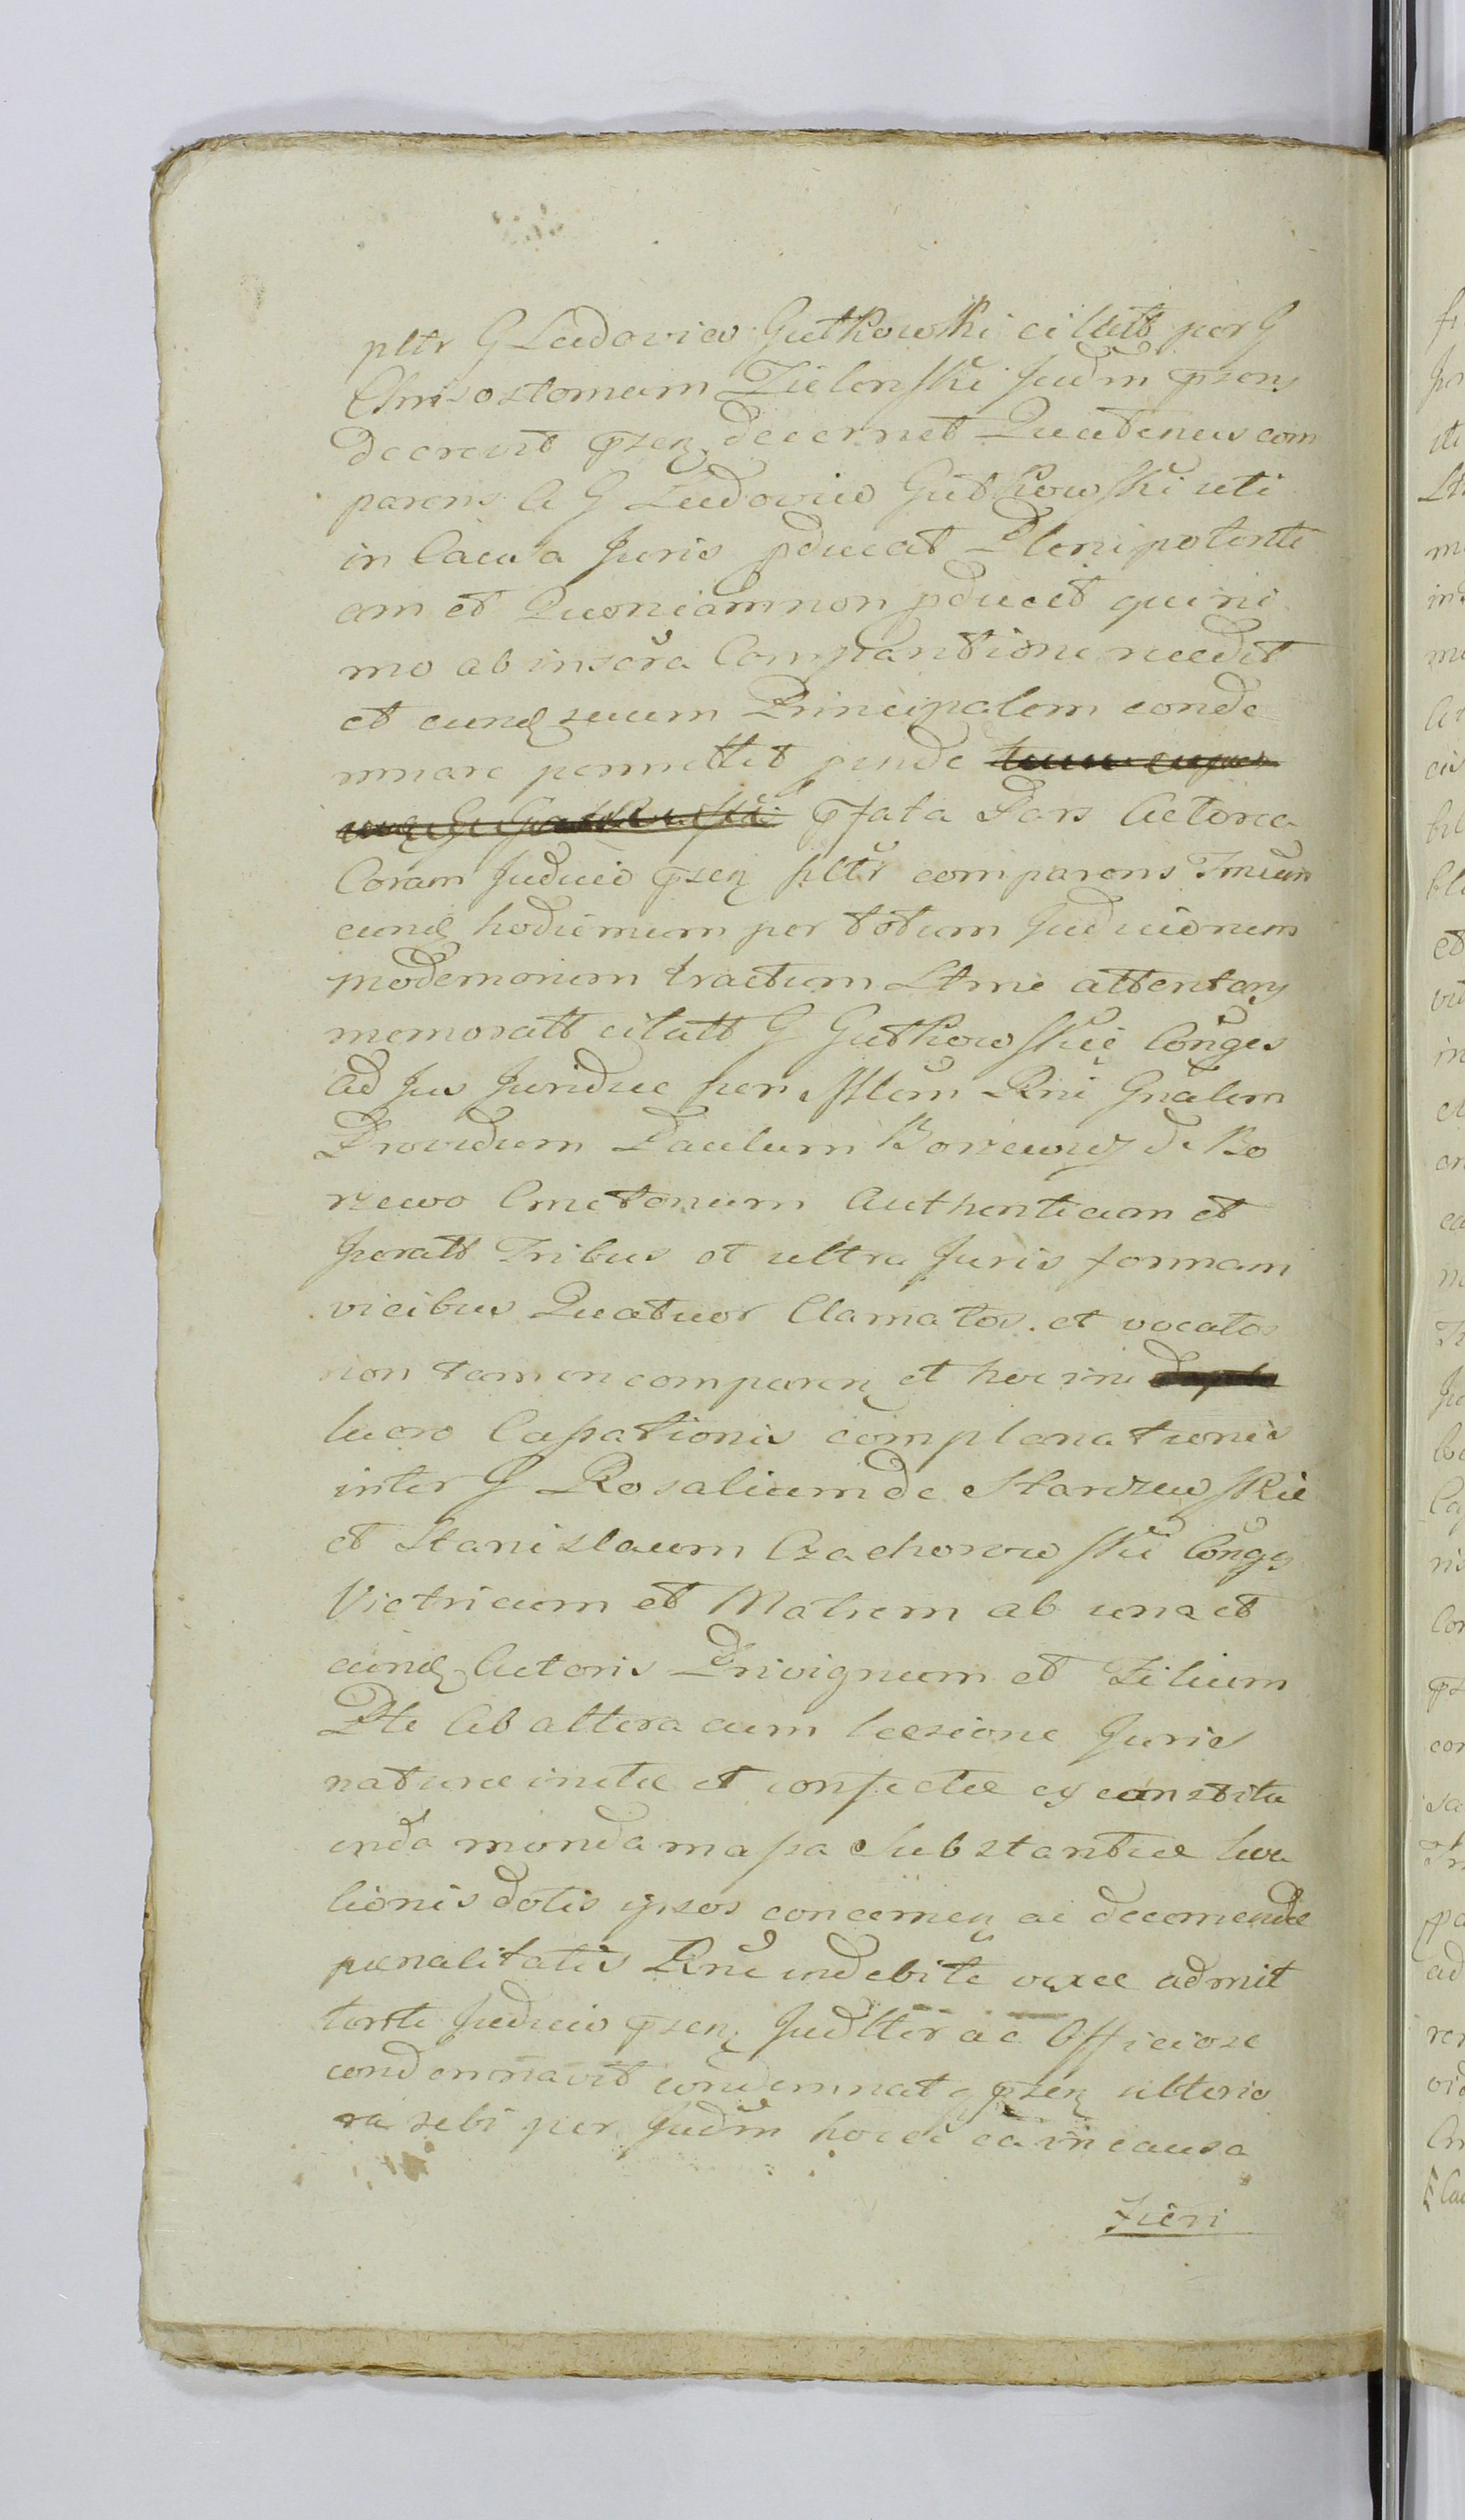 pltr G Ludovico Gutkowski citatt per G
Chrisostomum Zielenski Judm pzens
decrevit pzen decernet Quatenus com
parens a G Ludovico Gutkowski uti
in Causa Juris pducat Plenipotenti
am et Quoniam non pducet quini
mo ab inscra Comparitione recedit
et eund suum Principalem conde
mnare permittit pinde
pfata Pars Actorea
Coram Judicio pzen pltr comparens Tmum
eund hodiernum per totum Judiciorum
modernorum tractum Ltme attentans
memoratt citatt G Gutkowskie Conges
ad Jus Juridice per Mlem Rni Gnalem
Providum Paulum Borzewicz de Bo
rzewo Cmetonum Authenticum et
Juratt Tribus et ultra Juris formam
vicibus Quatuor Clamatos et vocatos
non tamen comparen et hoc in
lucro Cassationis complanationis
inter G Rosaliam de Starzewskie
et Stanislaum Czachorowskie Conges
Victricum et Matrem ab una et
eund Actoris Privignum et Filium
Pte ab altera cum laesione Juris
naturae initae et confectae ex constitu
enda monda massa Substantiae lua
tionis dotis ipsos concernen ac decernendae
paenalitatis Rne indebite vexae admit
tente Judicio pzen Judltter ac Officiose
condemnavit condemnatq pzen ulterio
ra sebi per Judm hocce ea in causa
Fieri